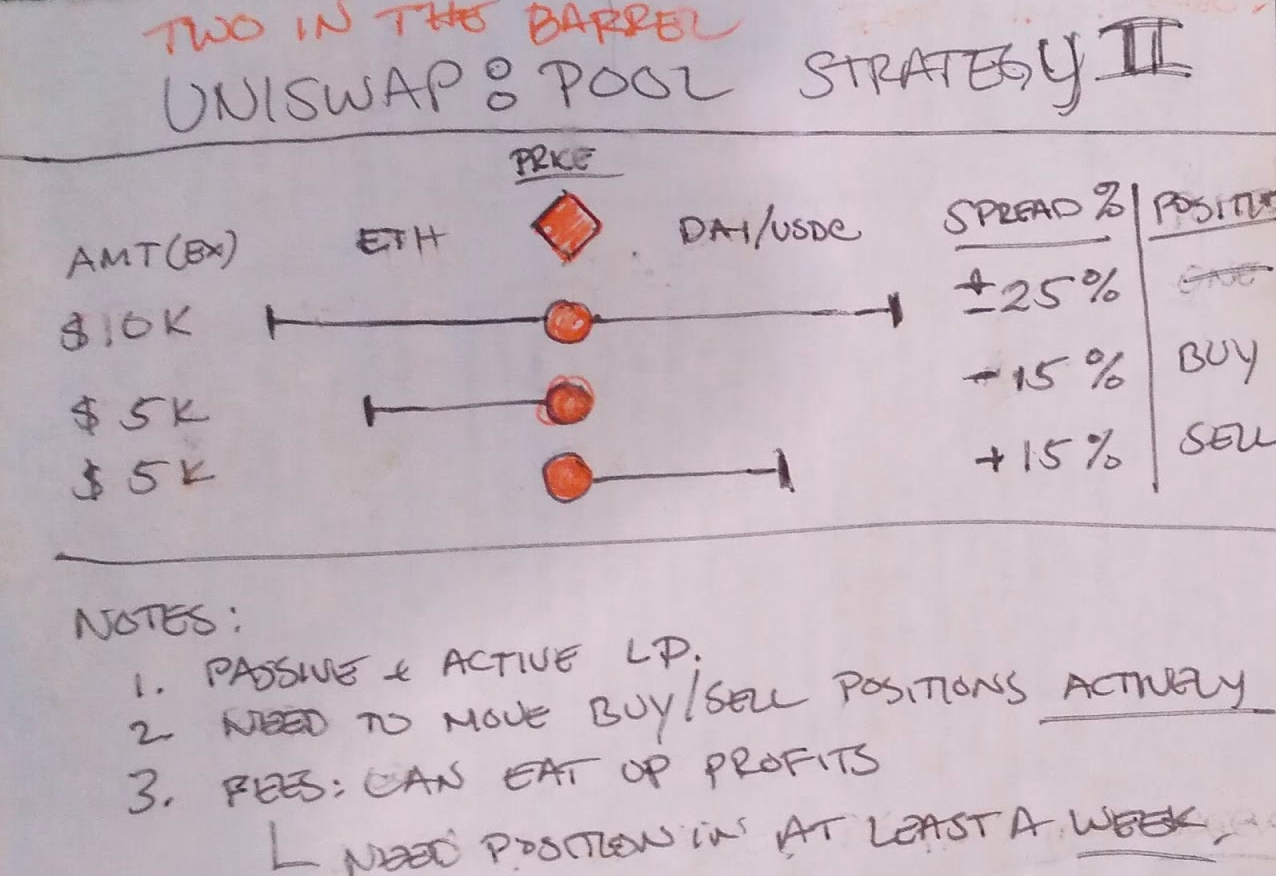 TWO IN THE BARREL
UNISWAP: POOL STRATEGY II
PRICE
AMT(EX) ETH DAI/USDC SPREAD %
$10K ±25%
$5K -15% BUY
$5K +15% SELL
NOTES:
1. PASSIVE & ACTIVE LP.
2 NEED TO MOVE BUY/SELL POSITIONS ACTIVELY
3. FEES: CAN EAT UP PROFITS
NEED POSITION IN AT LEAST A WEEK.